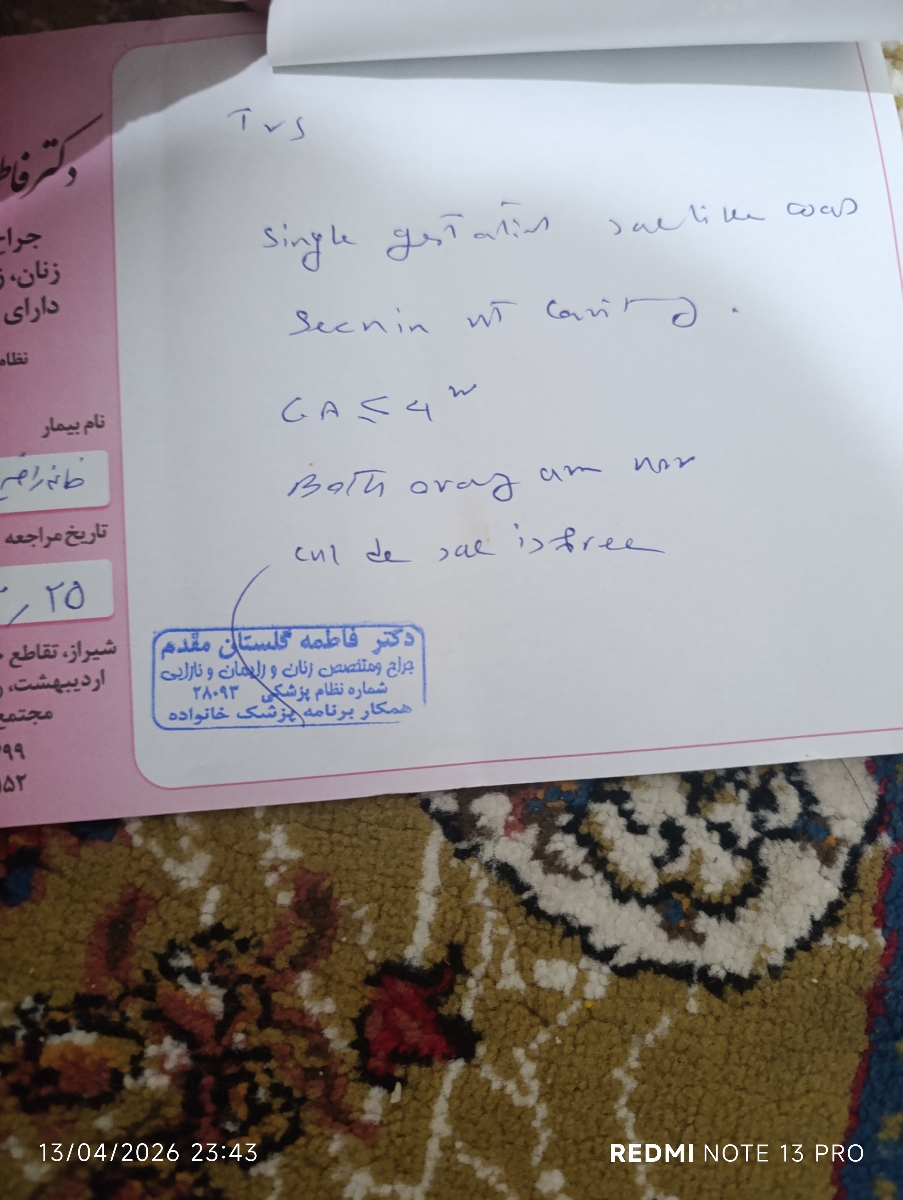 دکتر فاط
جراح
زنان، ز
دارای
نظام
نام بیمار
تاریخ مراجعه
۲۵
شیراز، تقاطع
اردیبهشت،
مجتمع
۹۹
۱۵۲
TVS
Single gestation sac like was
seen in ut cavity.
GA ≤ 4w
Both ovary are nor
cul de sac is free
دکتر فاطمه گلستان مقدم
جراح و متخصص زنان و زایمان و نازایی
شماره نظام پزشکی ۲۸۰۹۳
همکار برنامه پزشک خانواده
13/04/2026 23:43
REDMI NOTE 13 PRO